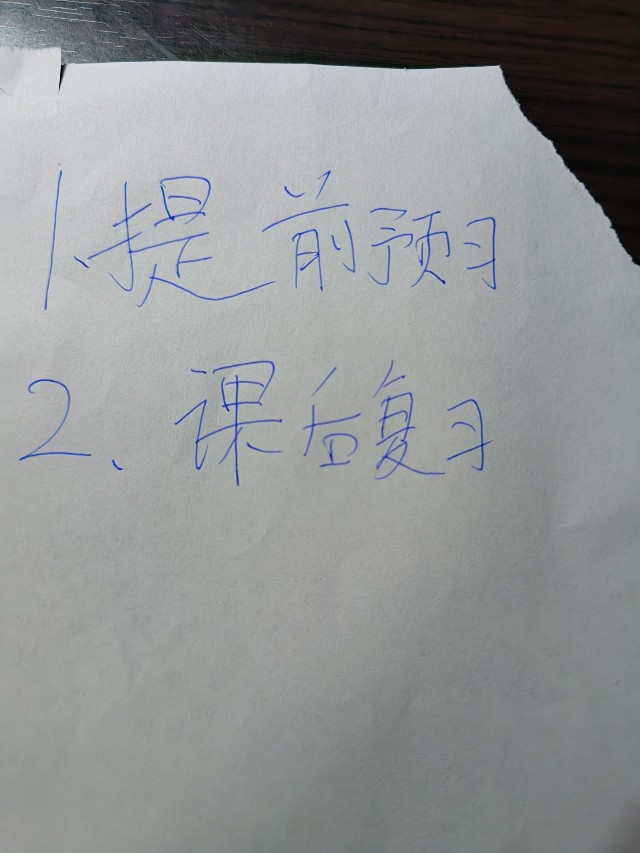 1、提前预习
2、课后复习